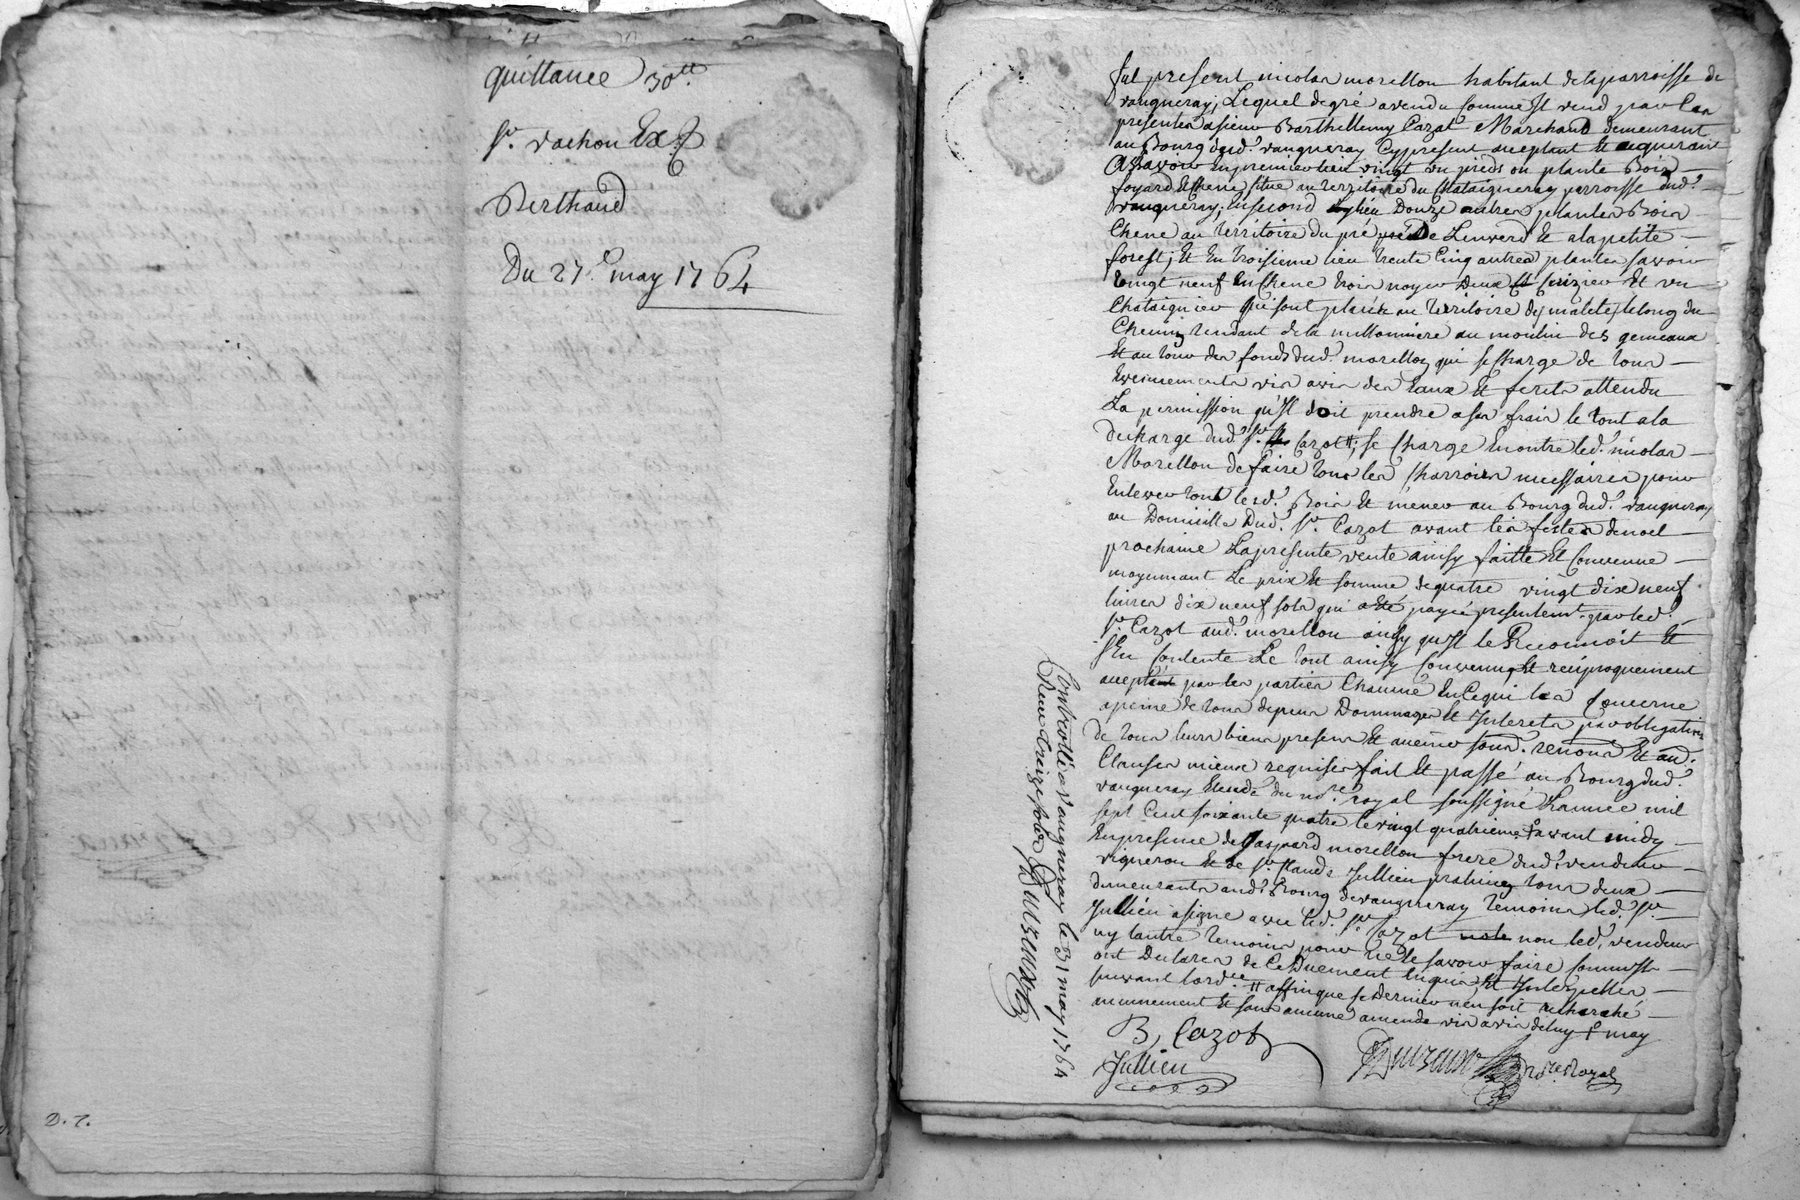 quittance 30tt
Sr. vachon Ex
Berthaud
Du 27e. may 1764
D. 7.
fut present nicolas morellon habitant de la parroisse de
vaugneray, Lequel de gré a vendu Comme Jl vend par Les
presentes a sieur Barthellemy Cazot Marchand demeurant
au Bourg dud. vaugneray Cy present acceptant Et aquerant
A Savoir En premier lieu vingt un pieds ou plante Bois
foyard Et chene situé au territoire du Chataigneray parroisse dud.
vaugneray, En second lieu Douze autres plantes Bois
Chene au territoire du pré Lenverd Et a la petite
forest, Et En troisieme lieu trente Cinq autres plantes savoir
vingt neuf En Chene trois noyer Deux Cerizier Et un
Chataignier qui sont placés au territoire de malete, le long du
Chemin tendant de la millonniere au moulin des gemeaux
Et au tour des fonds dud. morellon qui se Charge de tous
Evenements vis a vis des Eaux Et forets attendu
La permission qu'Jl doit prendre a ses frais le tout a la
decharge dud. Sr. Cazot tt; se Charge En outre led. nicolas
Morellon de faire tous les Charrois necessaires pour
Enlever tout lesd. Bois Et mener au Bourg dud. vaugneray
au Domicille Dud. Sr. Cazot avant les festes de noel
prochaine La presente vente ainsy faitte Et Convenue
moyennant Le prix Et somme de quatre vingt dix neuf
livres dix neuf sols qui a Eté payée presentemt. par led.
Sr. Cazot aud. morellon ainsy qu'Jl le Reconnoit Et
s'En Contente Le tout ainsy Convenu Et reciproquement
accepté par les parties Chacune En Ce qui les Concerne
a peine de tous depens Dommages Et Jnterets par obligation
de tous leurs biens presens Et avenir soud. renond. Et aud.
Clauses mieux requises fait Et passé au Bourg dud.
vaugneray Etude du nore. royal soussigné L'année mil
sept Cent soixante quatre le vingt quatrieme f avant midy
En presence de Gaspard morellon frere dud. vendeur
vigneron Et de Sr. Claude Jullien praticien tous deux
demeurants aud. Bourg de vaugneray temoins led. Sr.
Jullien a signé avec led. Sr. Cazot non led. vendeur
ny l'autre temoins pour ne le savoir faire Comme Jls
ont Declarés de Ce Duement Enquis Et Jnterpellés
suivant lordce. tt affin que se dernier n'en soit recherché
aucunement Et sans aucune amende vis a vis de luy f may
B, Cazot
Jullien
nore. Royal
Controllé a vaugneray le 31 may 1764
Reçu treize sols